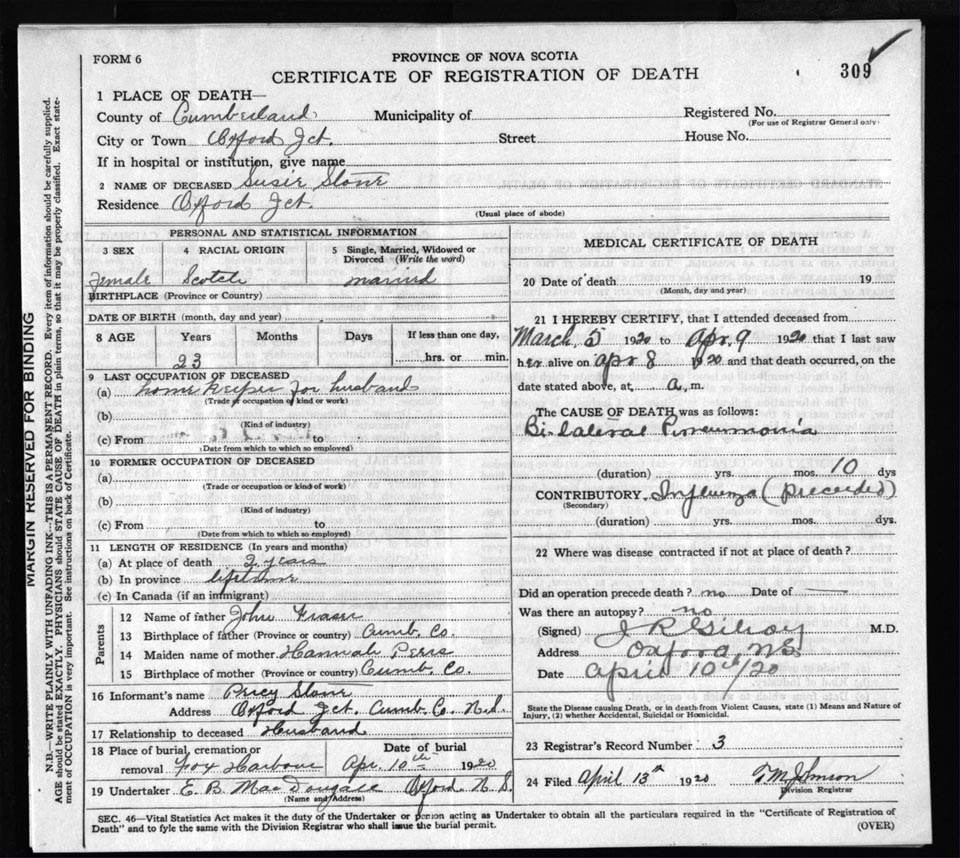 FORM 6
PROVINCE OF NOVA SCOTIA
CERTIFICATE OF REGISTRATION OF DEATH
309
1 PLACE OF DEATH—
County of Cumberland Municipality of Registered No.
(For use of Registrar General only)
City or Town Oxford Jct. Street House No.
If in hospital or institution, give name
2 NAME OF DECEASED Susie Stone
Residence Oxford Jct.
(Usual place of abode)
PERSONAL AND STATISTICAL INFORMATION
3 SEX 4 RACIAL ORIGIN 5 Single, Married, Widowed or Divorced (Write the word)
Female Scotch married
BIRTHPLACE (Province or Country)
DATE OF BIRTH (month, day and year)
8 AGE Years Months Days If less than one day,
23 hrs. or min.
9 LAST OCCUPATION OF DECEASED
(a) home keeper for husband
(Trade or occupation of kind or work)
(b)
(Kind of industry)
(c) From to
(Date from which to which so employed)
10 FORMER OCCUPATION OF DECEASED
(a)
(Trade or occupation or kind of work)
(b)
(Kind of industry)
(c) From to
(Date from which to which so employed)
11 LENGTH OF RESIDENCE (In years and months)
(a) At place of death 2 years
(b) In province lifetime
(c) In Canada (if an immigrant)
Parents
12 Name of father John Fraser
13 Birthplace of father (Province or country) Cumb. Co.
14 Maiden name of mother Hannah
15 Birthplace of mother (Province or country) Cumb. Co.
16 Informant's name Percy Stone
Address Oxford Jct. Cumb. Co. N.S.
17 Relationship to deceased Husband
18 Place of burial, cremation or Date of burial
removal Fox Harbour Apr. 10th 1920
19 Undertaker E. B. MacDougall Oxford N. S.
(Name and Address)
MEDICAL CERTIFICATE OF DEATH
20 Date of death 19
(Month, day and year)
21 I HEREBY CERTIFY, that I attended deceased from
March 5 1920 to Apr. 9 1920 that I last saw
her alive on Apr 8 1920 and that death occurred, on the
date stated above, at a, m.
The CAUSE OF DEATH was as follows:
Bi-lateral Pneumonia
(duration) yrs. mos. 10 dys
CONTRIBUTORY Influenza (preceded)
(Secondary)
(duration) yrs. mos. dys.
22 Where was disease contracted if not at place of death?
Did an operation precede death? no Date of —
Was there an autopsy? no
(Signed) J R Gilroy M.D.
Address Oxford, N.S.
Date April 10th/20
State the Disease causing Death, or in death from Violent Causes, state (1) Means and Nature of
Injury, (2) whether Accidental, Suicidal or Homicidal.
23 Registrar's Record Number 3
24 Filed April 13th 1920 T.M. Johnson
Division Registrar
SEC. 46—Vital Statistics Act makes it the duty of the Undertaker or person acting as Undertaker to obtain all the particulars required in the "Certificate of Registration of
Death" and to fyle the same with the Division Registrar who shall issue the burial permit.
(OVER)
MARGIN RESERVED FOR BINDING
N.B.—WRITE PLAINLY WITH UNFADING INK—THIS IS A PERMANENT RECORD. Every item of information should be carefully supplied.
AGE should be stated EXACTLY. PHYSICIANS should STATE CAUSE OF DEATH in plain terms, so that it may be properly classified. Exact state-
ment of OCCUPATION is very important. See instructions on back of Certificate.